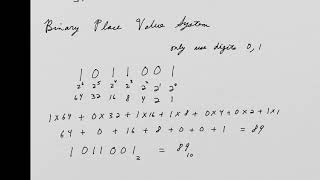 Binary Place Value System
only use digits 0, 1
1 0 1 1 0 0 1
2⁶ 2⁵ 2⁴ 2³ 2² 2¹ 2⁰
64 32 16 8 4 2 1
1×64 + 0×32 + 1×16 + 1×8 + 0×4 + 0×2 + 1×1
64 + 0 + 16 + 8 + 0 + 0 + 1 = 89
1 0 1 1 0 0 1₂ = 89₁₀